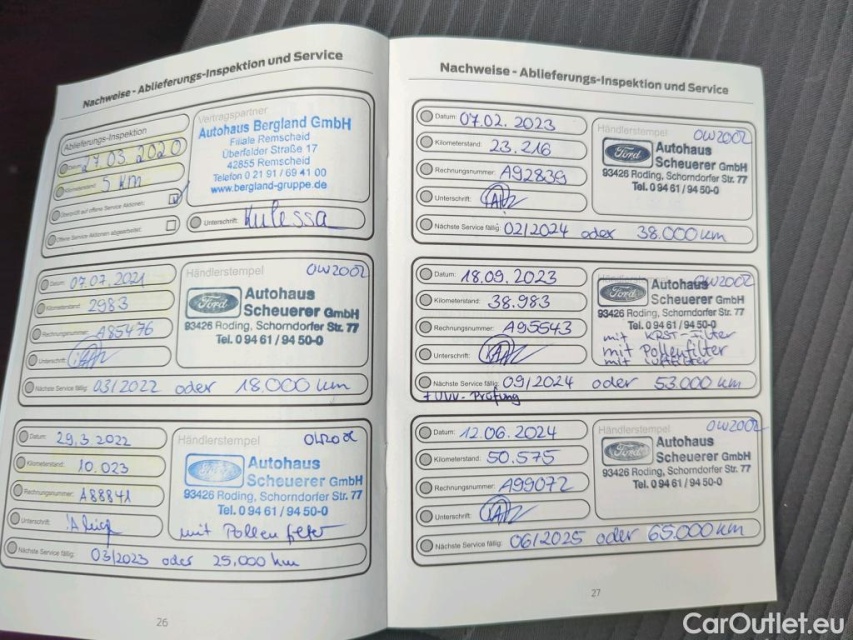 Nachweise - Ablieferungs-Inspektion und Service
Ablieferungs-Inspektion
Datum: 27 03 2020
Kilometerstand: 5 km
Überprüft auf offene Service Aktionen:
Offene Service Aktionen abgearbeitet:
Vertragspartner
Autohaus Bergland GmbH
Filiale Remscheid
Überfelder Straße 17
42855 Remscheid
Telefon 0 21 91 / 69 41 00
www.bergland-gruppe.de
Unterschrift: Kulessa
Datum: 07.07.2021
Kilometerstand: 2983
Rechnungsnummer: A85476
Unterschrift:
Nächste Service fällig: 03/2022 oder 18.000 km
Händlerstempel OW2002
Ford Autohaus
Scheuerer GmbH
93426 Roding, Schorndorfer Str. 77
Tel. 0 94 61 / 94 50-0
Datum: 29.3 2022
Kilometerstand: 10.023
Rechnungsnummer: A88841
Unterschrift:
Nächste Service fällig: 03/2023 oder 25.000 km
Händlerstempel
Ford Autohaus
Scheuerer GmbH
93426 Roding, Schorndorfer Str. 77
Tel. 0 94 61 / 94 50-0
mit Pollenfilter
26
Nachweise - Ablieferungs-Inspektion und Service
Datum: 07.02.2023
Kilometerstand: 23.216
Rechnungsnummer: A92839
Unterschrift:
Nächste Service fällig: 02/2024 oder 38.000 km
Händlerstempel OW2002
Ford Autohaus
Scheuerer GmbH
93426 Roding, Schorndorfer Str. 77
Tel. 0 94 61 / 94 50-0
Datum: 18.09.2023
Kilometerstand: 38.983
Rechnungsnummer: A95543
Unterschrift:
Nächste Service fällig: 09/2024 oder 53.000 km
+ UVV-Prüfung
Händlerstempel OW2002
Ford Autohaus
Scheuerer GmbH
93426 Roding, Schorndorfer Str. 77
Tel. 0 94 61 / 94 50-0
mit KRST-Filter
mit Pollenfilter
mit Luftfilter
Datum: 12.06.2024
Kilometerstand: 50.575
Rechnungsnummer: A99072
Unterschrift:
Nächste Service fällig: 06/2025 oder 65.000 km
Händlerstempel OW2002
Ford Autohaus
Scheuerer GmbH
93426 Roding, Schorndorfer Str. 77
Tel. 0 94 61 / 94 50-0
27
CarOutlet.eu